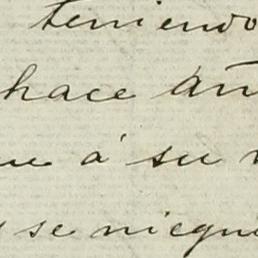 teniendo
hace añ
ue á su
se niegu